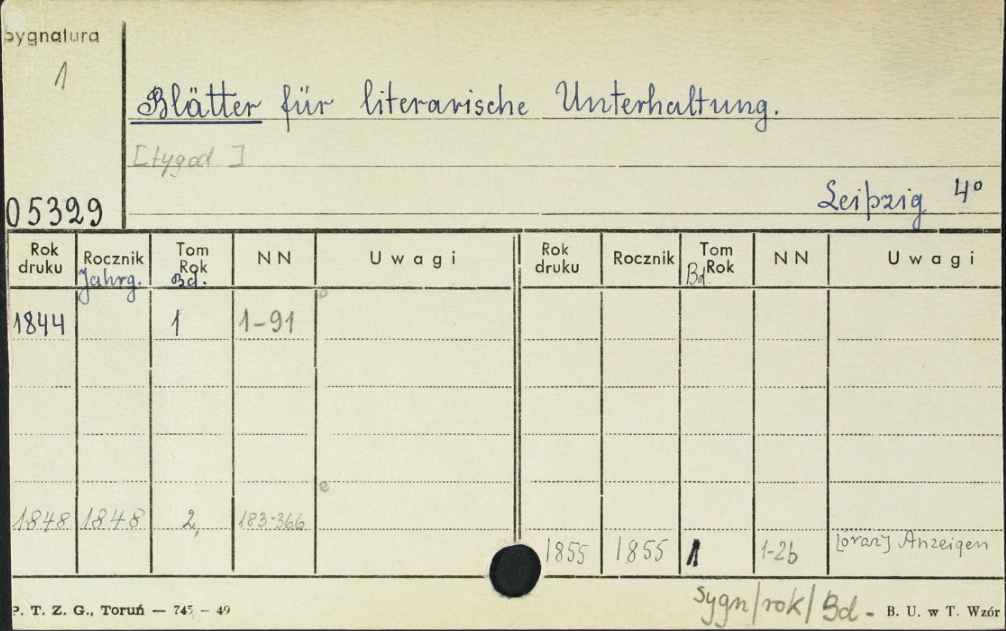 Sygnatura
1
Blätter für literarische Unterhaltung.
[tygod ]
Leipzig 4°
05329
Rok druku Rocznik Jahrg. Tom Rok Bd. NN Uwagi Rok druku Rocznik Tom Rok Bd. NN Uwagi
1844 1 1-91
1848 1848 2, 183-366
1855 1855 1 1-26 [oraz] Anzeigen
sygn/rok/Bd -
P. T. Z. G., Toruń — 745 — 49
B. U. w T. Wzór